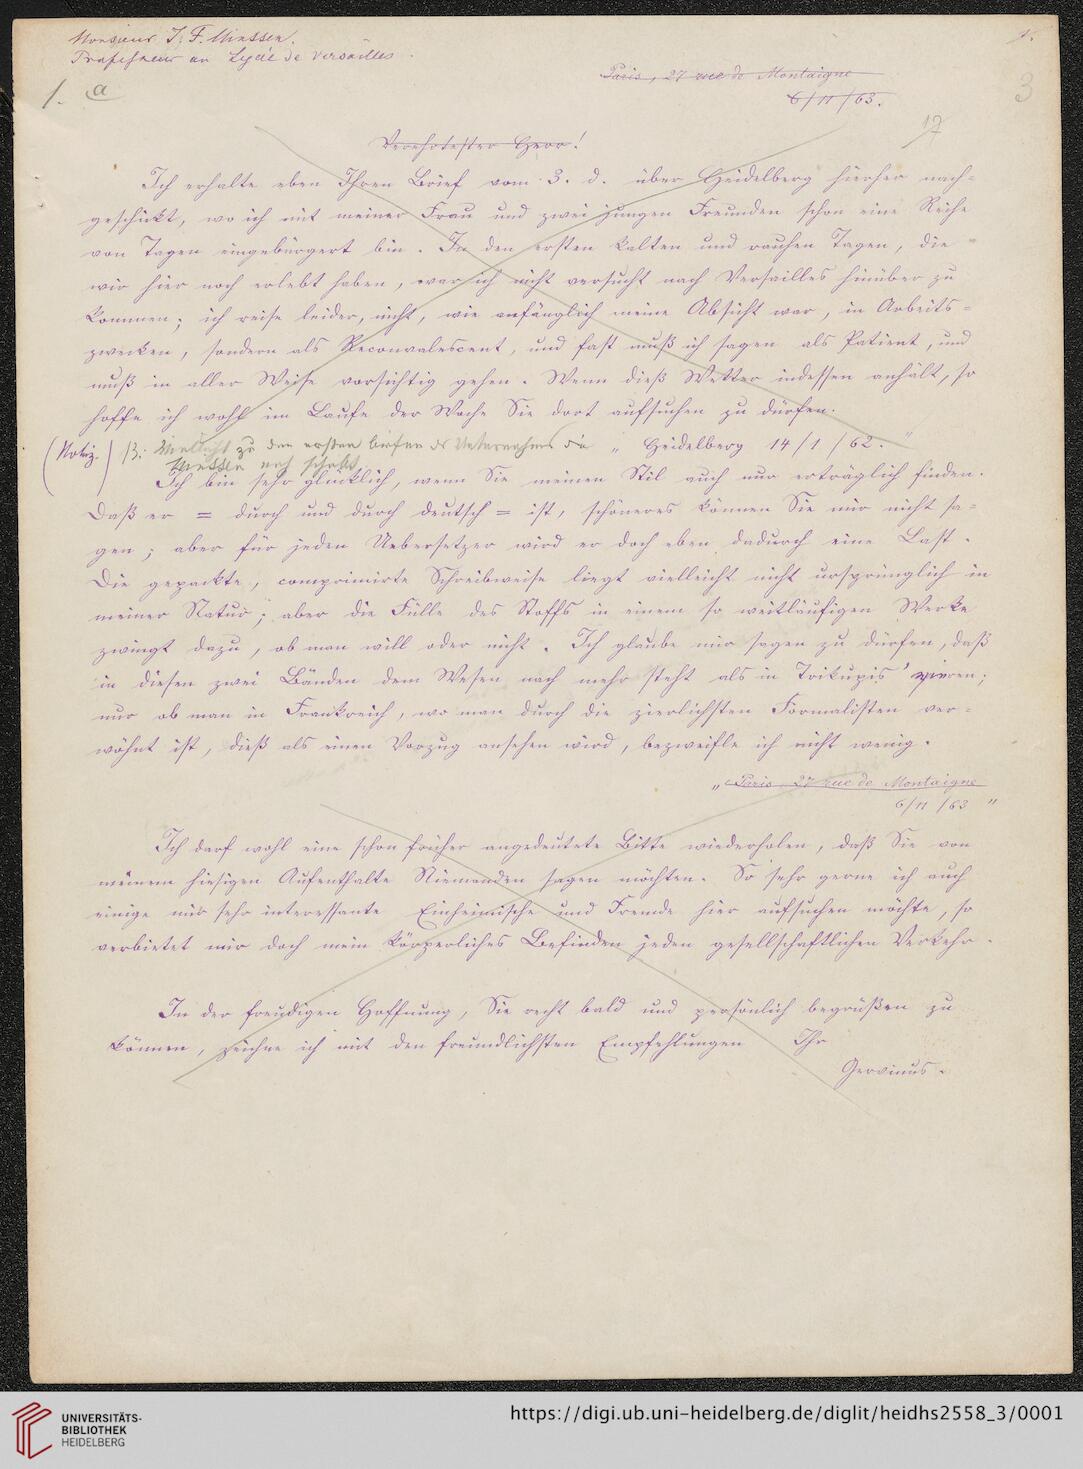 Monsieur J. F. Minssen.
Professeur au Lycée de Versailles.
1. a
1.
3
Paris, 27 rue de Montaigne
6/11/63.
17
Verehrtester Herr!
Ich erhalte eben Ihren Brief vom 3. d. über Heidelberg hierher nach-
geschickt, wo ich mit meiner Frau und zwei jungen Freunden schon eine Reihe
von Tagen eingebürgert bin. In den ersten kalten und rauhen Tagen, die
wir hier noch erlebt haben, war ich nicht versucht nach Versailles hinüber zu
kommen; ich reise leider, nicht, wie anfänglich meine Absicht war, in Arbeits-
zwecken, sondern als Reconvalescent, und fast muß ich sagen als Patient, und
muß in aller Weise vorsichtig gehen. Wenn dieß Wetter indessen anhält, so
hoffe ich wohl im Laufe der Woche Sie dort aufsuchen zu dürfen.
(Notiz.) B: Vielleicht zu den ersten Briefen des Unternehmens die „Heidelberg 14/1/62."
Minssen noch
Ich bin sehr glücklich, wenn Sie meinen Stil auch nur erträglich finden.
Daß er = durch und durch deutsch = ist, schöneres können Sie mir nicht sa-
gen; aber für jeden Uebersetzer wird er doch eben dadurch eine Last.
Die gepackte, comprimirte Schreibweise liegt vielleicht nicht ursprünglich in
meiner Natur; aber die Fülle des Stoffs in einem so weitläufigen Werke
zwingt dazu, ob man will oder nicht. Ich glaube mir sagen zu dürfen, daß
in diesen zwei Bänden dem Wesen nach mehr steht als in Trikupis' vieren;
nur ob man in Frankreich, wo man durch die zierlichsten Formalisten ver-
wöhnt ist, dieß als einen Vorzug ansehen wird, bezweifle ich nicht wenig.
„Paris 27 rue de Montaigne
6/11/63"
Ich darf wohl eine schon früher angedeutete Bitte wiederholen, daß Sie von
meinem hiesigen Aufenthalte Niemanden sagen möchten. So sehr gerne ich auch
einige mir sehr interessante Einheimische und Fremde hier aufsuchen möchte, so
verbietet mir doch mein körperliches Befinden jeden gesellschaftlichen Verkehr.
In der freudigen Hoffnung, Sie recht bald und persönlich begrüßen zu
können, zeichne ich mit den freundlichsten Empfehlungen Ihr
Gervinus.
UNIVERSITÄTS-
BIBLIOTHEK
HEIDELBERG
https://digi.ub.uni-heidelberg.de/diglit/heidhs2558_3/0001